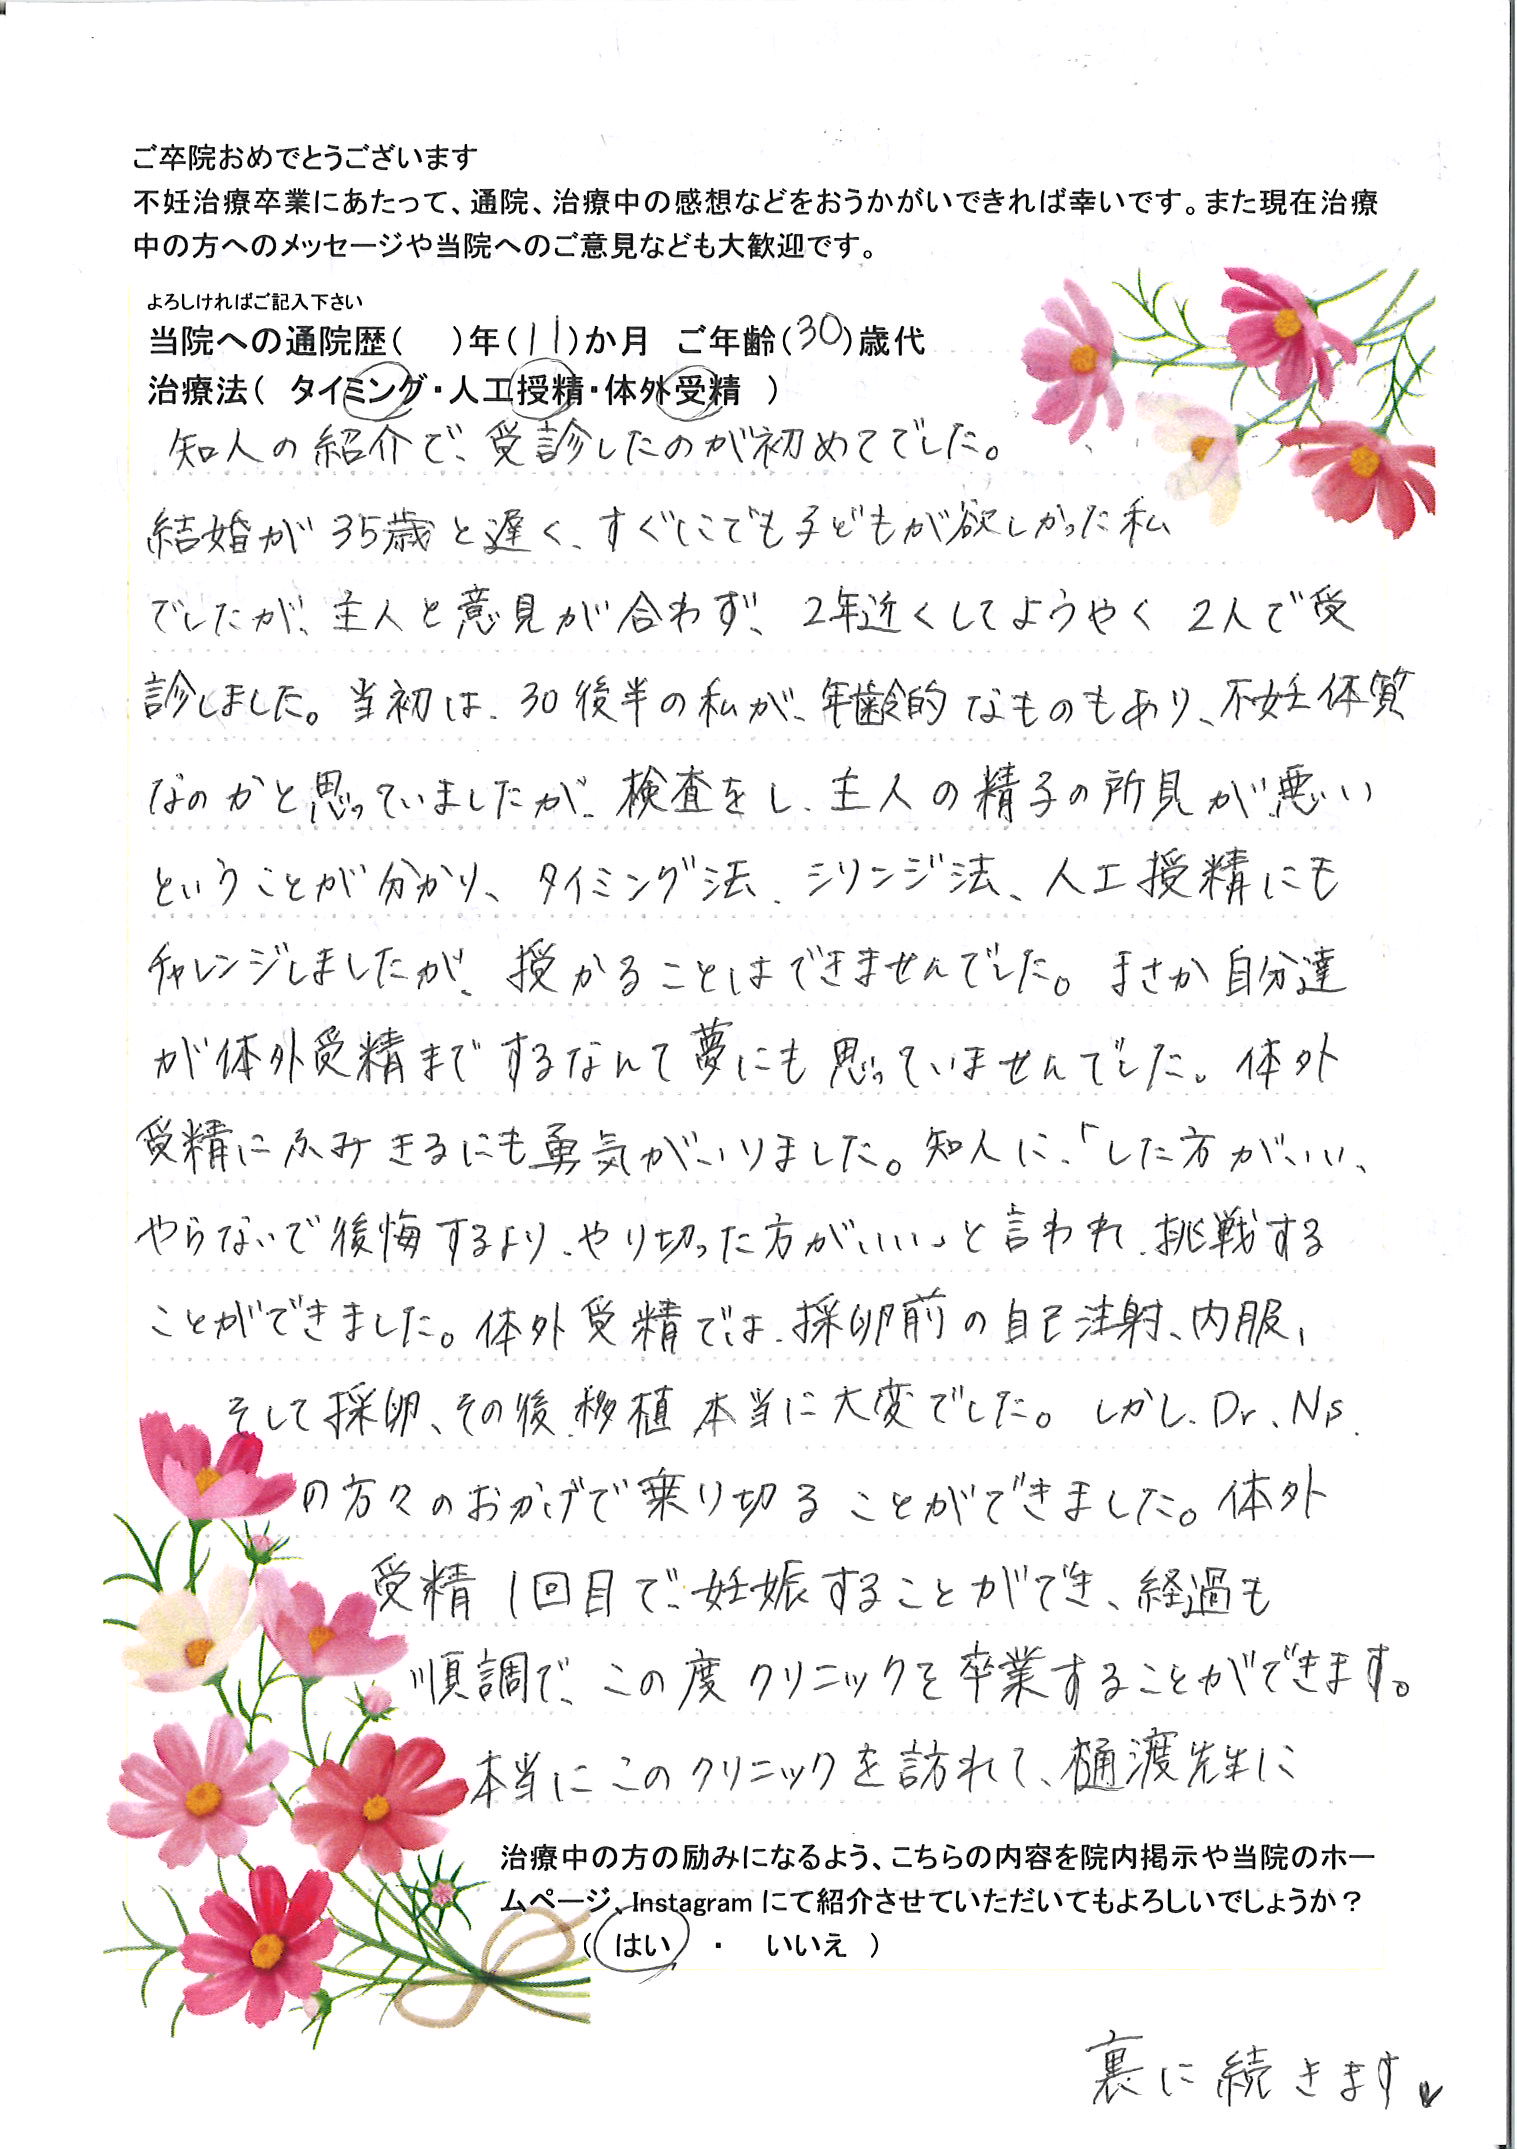 ご卒院おめでとうございます
不妊治療卒業にあたって、通院、治療中の感想などをおうかがいできれば幸いです。また現在治療
中の方へのメッセージや当院へのご意見なども大歓迎です。
よろしければご記入下さい
当院への通院歴(　)年(11)か月　ご年齢(30)歳代
治療法(　タイミング・人工授精・体外受精　)
知人の紹介で、受診したのが初めてでした。
結婚が35歳と遅く、すぐにでも子どもが欲しかった私
でしたが、主人と意見が合わず、2年近くしてようやく2人で受
診しました。当初は、30後半の私が、年齢的なものもあり、不妊体質
なのかと思っていましたが、検査をし、主人の精子の所見が悪い
ということが分かり、タイミング法、シリンジ法、人工授精にも
チャレンジしましたが、授かることはできませんでした。まさか自分達
が体外受精までするなんて夢にも思っていませんでした。体外
受精にふみきるにも勇気がいりました。知人に、「した方がいい、
やらないで後悔するより、やり切った方がいい」と言われ、挑戦する
ことができました。体外受精では、採卵前の自己注射、内服、
そして採卵、その後、移植、本当に大変でした。しかし、Dr、Ns.
の方々のおかげで乗り切ることができました。体外
受精1回目で、妊娠することができ、経過も
順調で、この度クリニックを卒業することができます。
本当にこのクリニックを訪れて、樋渡先生に
治療中の方の励みになるよう、こちらの内容を院内掲示や当院のホー
ムページ、Instagramにて紹介させていただいてもよろしいでしょうか？
(　はい　・　いいえ　)
裏に続きます